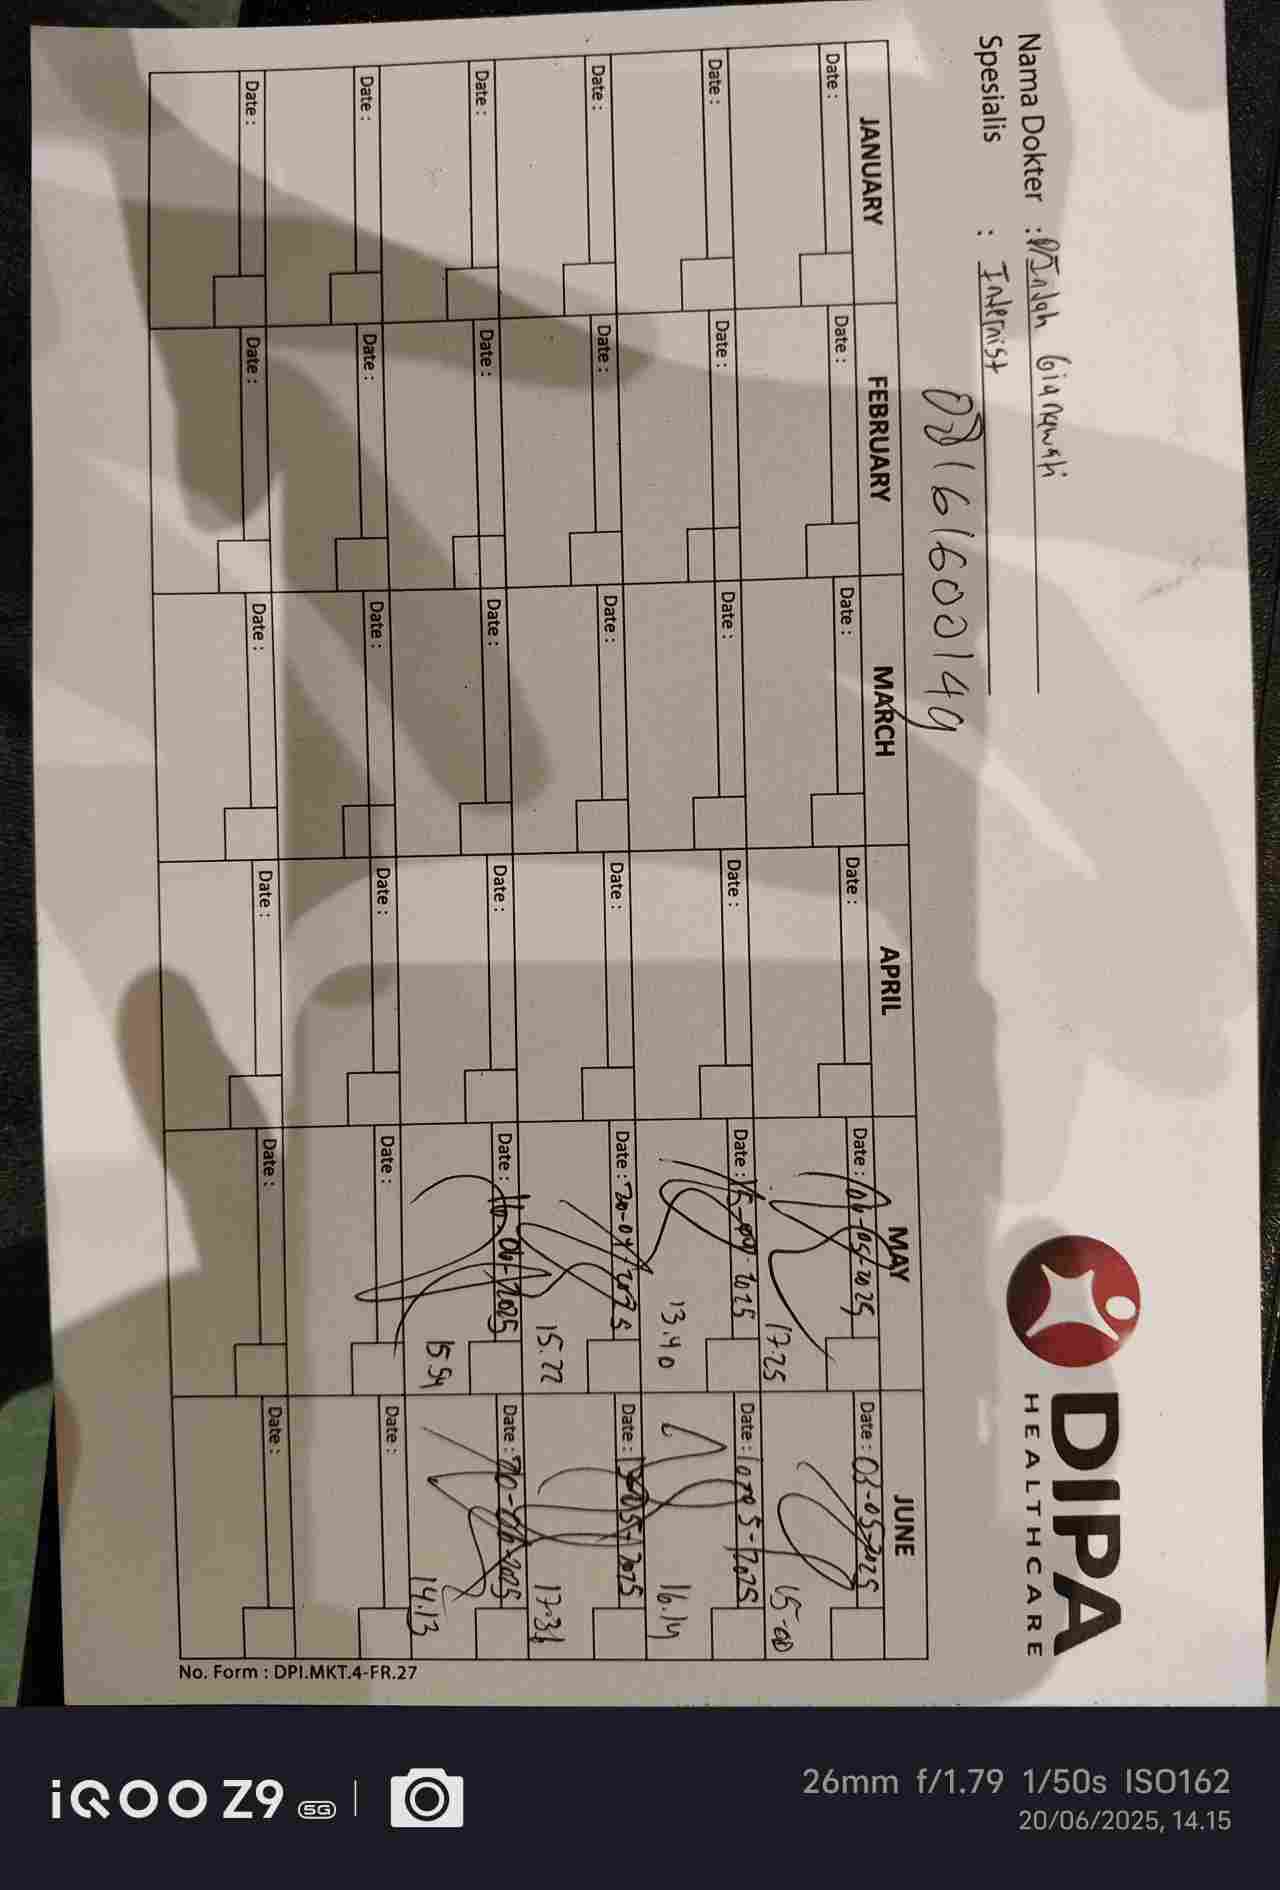 Nama Dokter : Indah Gianawati
Spesialis : Internist
DIPA
HEALTHCARE
08161600149
JANUARY FEBRUARY MARCH APRIL MAY JUNE
Date : Date : Date : Date : Date : 06-05-2025 Date : 02-05-2025
17.25 15-00
Date : Date : Date : Date : Date : 15-04-2025 Date : -2025
13.40 16.14
Date : Date : Date : Date : Date : 20-04-2025 Date : -05-2025
15.22 17.31
Date : Date : Date : Date : Date : 16-06-2025 Date : 20-06-2025
15.54 14.13
Date : Date : Date : Date : Date : Date :
Date : Date : Date : Date : Date : Date :
No. Form : DPI.MKT.4-FR.27
iQOO Z9 5G
26mm f/1.79 1/50s ISO162
20/06/2025, 14.15